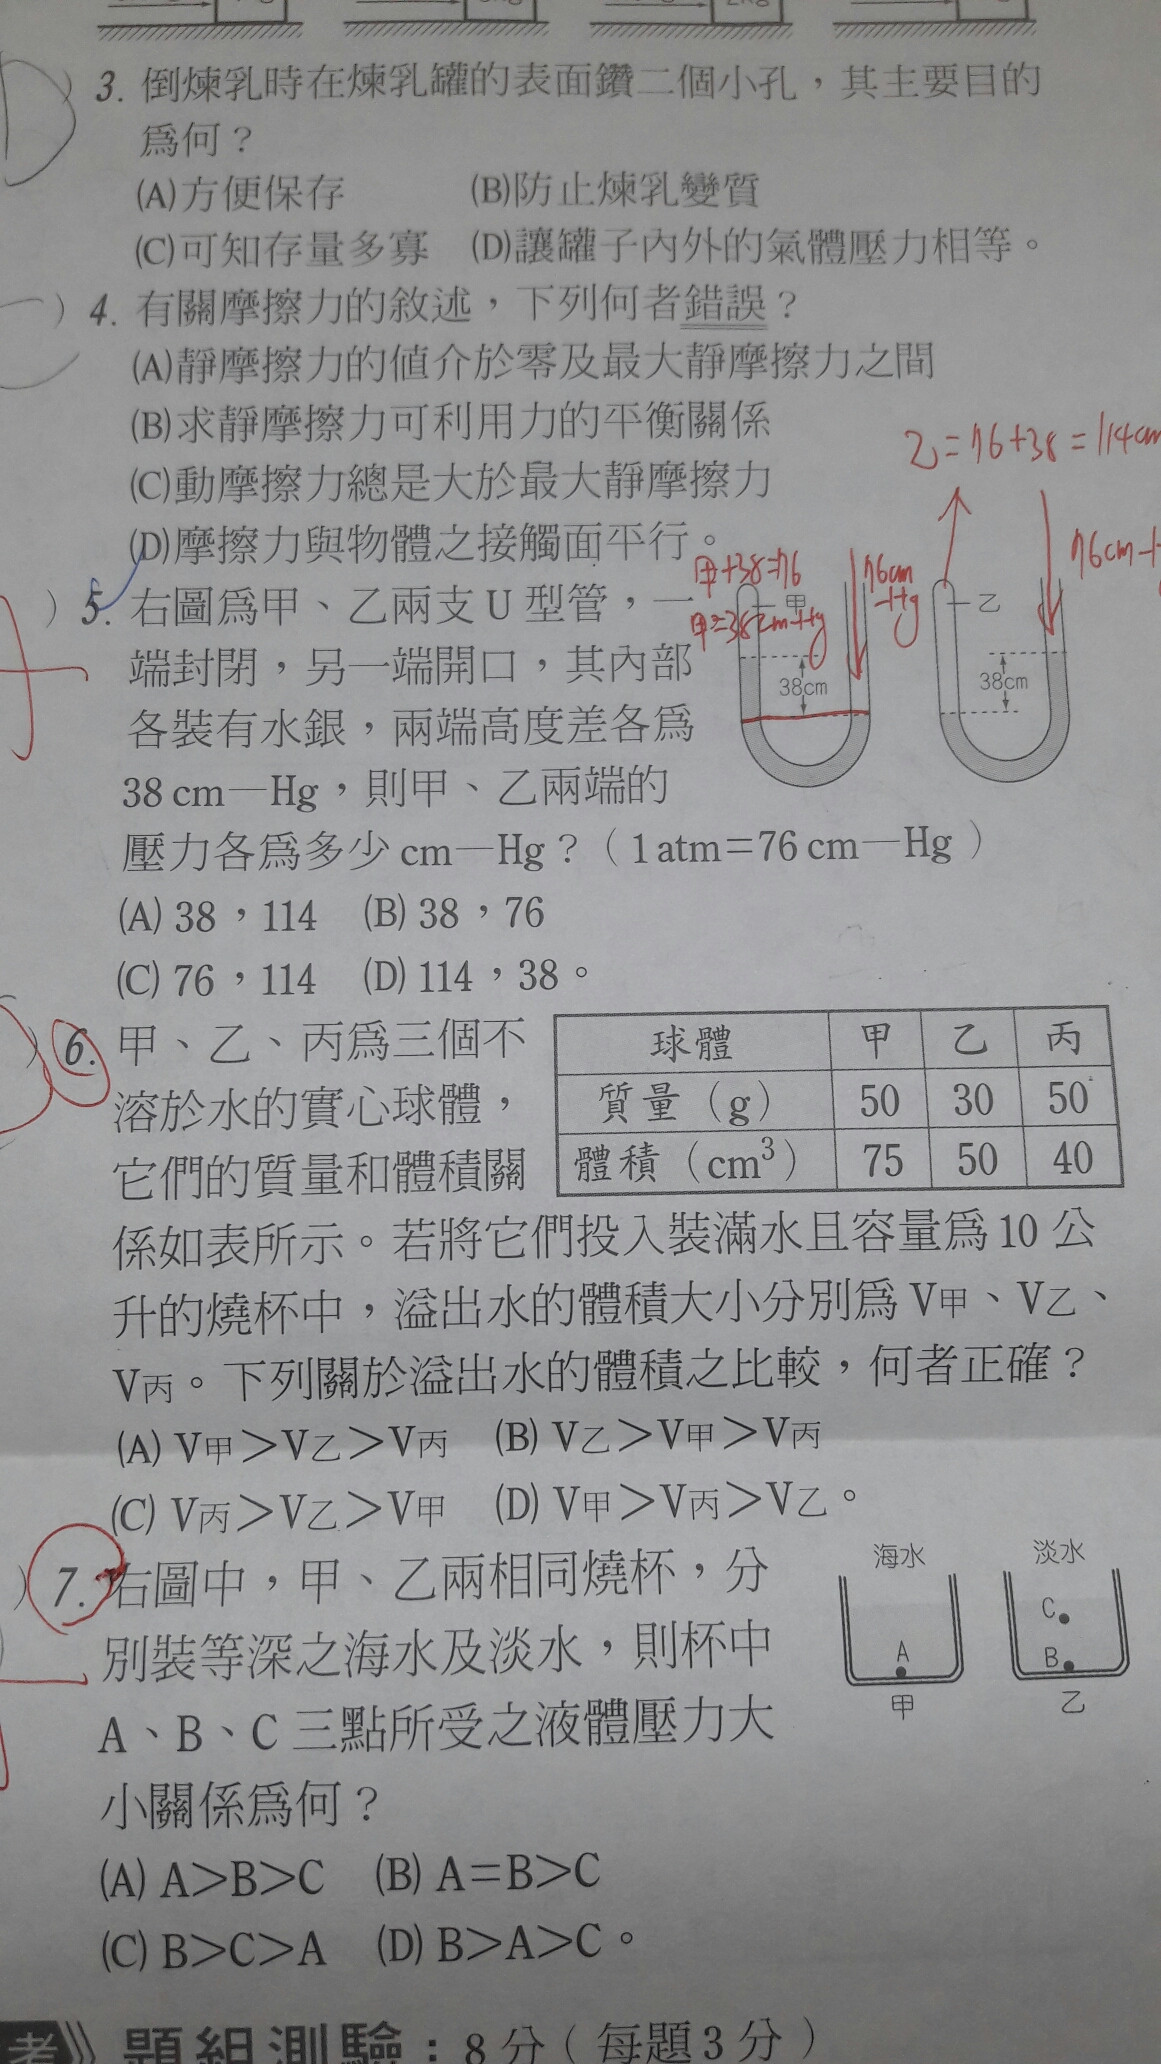 3. 倒煉乳時在煉乳罐的表面鑽二個小孔，其主要目的
為何？
(A)方便保存 (B)防止煉乳變質
(C)可知存量多寡 (D)讓罐子內外的氣體壓力相等。
）4. 有關摩擦力的敘述，下列何者錯誤？
(A)靜摩擦力的值介於零及最大靜摩擦力之間
(B)求靜摩擦力可利用力的平衡關係
(C)動摩擦力總是大於最大靜摩擦力
(D)摩擦力與物體之接觸面平行。
乙=76+38=114cm
甲+38=76
甲=38cm-Hg
76cm-Hg
甲
38cm
乙
38cm
）5. 右圖為甲、乙兩支U型管，一
端封閉，另一端開口，其內部
各裝有水銀，兩端高度差各為
38 cm－Hg，則甲、乙兩端的
壓力各為多少 cm－Hg？（1 atm＝76 cm－Hg）
(A) 38，114 (B) 38，76
(C) 76，114 (D) 114，38。
）6. 甲、乙、丙為三個不
溶於水的實心球體，
它們的質量和體積關
球體 甲 乙 丙
質量（g） 50 30 50
體積（cm³） 75 50 40
係如表所示。若將它們投入裝滿水且容量為10公
升的燒杯中，溢出水的體積大小分別為V甲、V乙、
V丙。下列關於溢出水的體積之比較，何者正確？
(A) V甲＞V乙＞V丙 (B) V乙＞V甲＞V丙
(C) V丙＞V乙＞V甲 (D) V甲＞V丙＞V乙。
）7. 右圖中，甲、乙兩相同燒杯，分
別裝等深之海水及淡水，則杯中
A、B、C 三點所受之液體壓力大
小關係為何？
海水
A
甲
淡水
C
B
乙
(A) A＞B＞C (B) A＝B＞C
(C) B＞C＞A (D) B＞A＞C。
考》題組測驗：8分（每題3分）